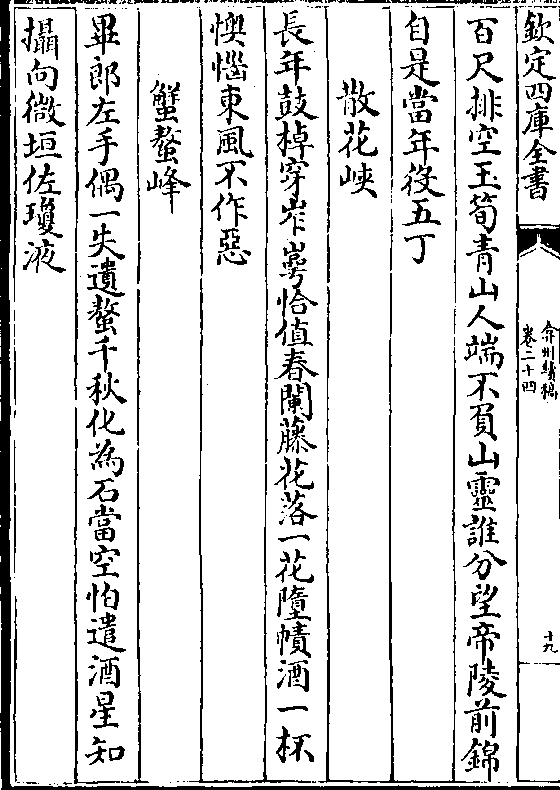 欽定四庫全書
弇州續稿
卷二十四
十九
百尺排空玉筍青山人端不負山靈誰分望帝陵前錦
自是當年役五丁
散花峽
長年鼓棹穿岝崿恰值春闌藤花落一花墮幘酒一杯
懊惱東風不作惡
蟹螯峰
畢郎左手偶一失遺螯千秋化為石當空怕遣酒星知
攝向微垣佐瓊液